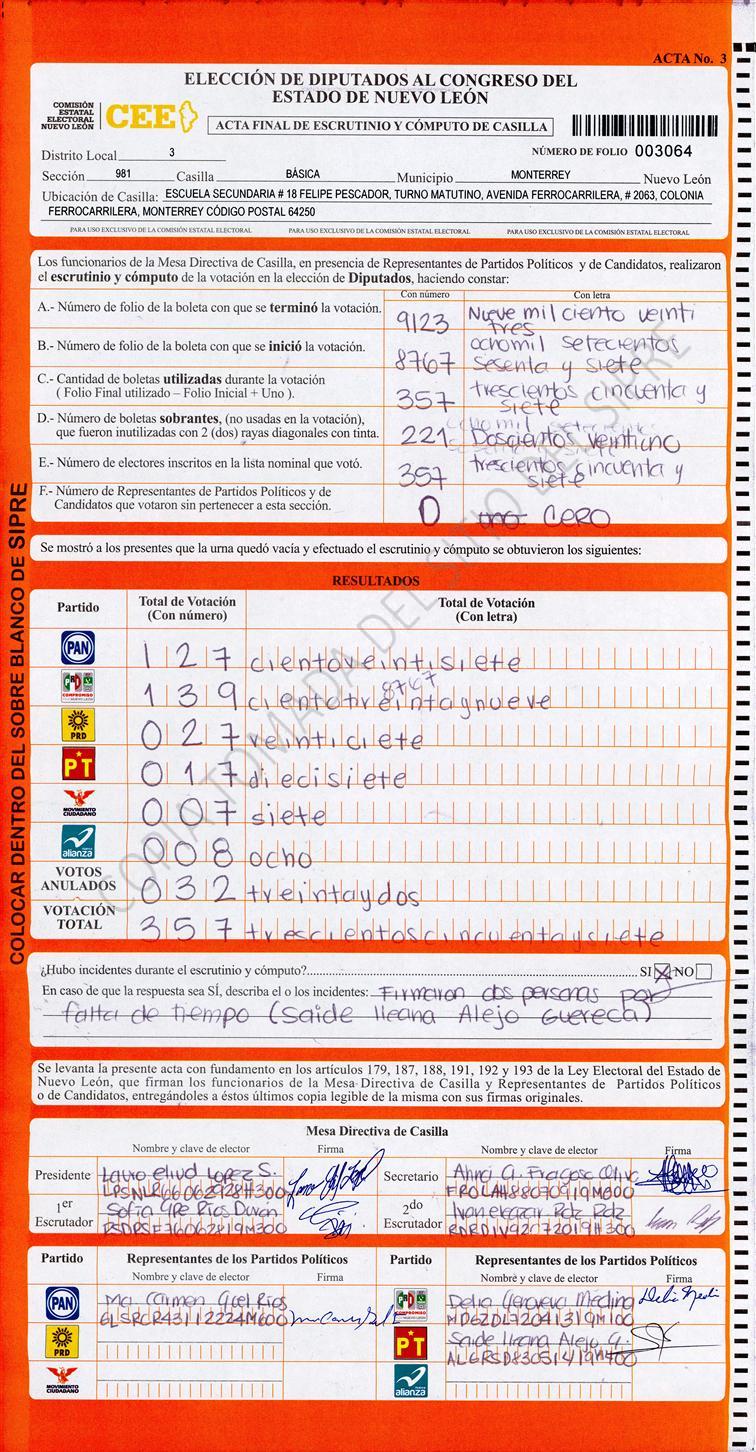 ACTA No. 3
ELECCIÓN DE DIPUTADOS AL CONGRESO DEL
ESTADO DE NUEVO LEÓN
COMISIÓN
ESTATAL
ELECTORAL
NUEVO LEÓN
CEE
ACTA FINAL DE ESCRUTINIO Y CÓMPUTO DE CASILLA
Distrito Local 3
NÚMERO DE FOLIO 003064
Sección 981 Casilla BÁSICA Municipio MONTERREY Nuevo León
Ubicación de Casilla: ESCUELA SECUNDARIA # 18 FELIPE PESCADOR, TURNO MATUTINO, AVENIDA FERROCARRILERA, # 2063, COLONIA
FERROCARRILERA, MONTERREY CÓDIGO POSTAL 64250
PARA USO EXCLUSIVO DE LA COMISIÓN ESTATAL ELECTORAL PARA USO EXCLUSIVO DE LA COMISIÓN ESTATAL ELECTORAL PARA USO EXCLUSIVO DE LA COMISIÓN ESTATAL ELECTORAL
Los funcionarios de la Mesa Directiva de Casilla, en presencia de Representantes de Partidos Políticos y de Candidatos, realizaron
el escrutinio y cómputo de la votación en la elección de Diputados, haciendo constar:
Con número Con letra
A.- Número de folio de la boleta con que se terminó la votación. 9123 Nueve mil ciento veinti
tres
B.- Número de folio de la boleta con que se inició la votación. 8767 ochomil setecientos
sesenta y siete
C.- Cantidad de boletas utilizadas durante la votación
( Folio Final utilizado – Folio Inicial + Uno ). 357 trescientos cincuenta y
siete
D.- Número de boletas sobrantes, (no usadas en la votación),
que fueron inutilizadas con 2 (dos) rayas diagonales con tinta. 221 Doscientos veintiuno
E.- Número de electores inscritos en la lista nominal que votó. 357 trescientos cincuenta y
siete
F.- Número de Representantes de Partidos Políticos y de
Candidatos que votaron sin pertenecer a esta sección. 0 uno CERO
Se mostró a los presentes que la urna quedó vacía y efectuado el escrutinio y cómputo se obtuvieron los siguientes:
RESULTADOS
Partido Total de Votación
(Con número) Total de Votación
(Con letra)
PAN 127 cientoveintisiete
8767
PRI COMPROMISO 139 cientotreintaynueve
PRD 027 veinticiete
PT 017 diecisiete
MOVIMIENTO CIUDADANO 007 siete
alianza 008 ocho
VOTOS
ANULADOS 032 treintaydos
VOTACIÓN
TOTAL 357 trescientoscincuentaysiete
¿Hubo incidentes durante el escrutinio y cómputo? SI X NO
En caso de que la respuesta sea SÍ, describa el o los incidentes: Firmaron dos personas por
falta de tiempo (Saide Ileana Alejo Guereca)
Se levanta la presente acta con fundamento en los artículos 179, 187, 188, 191, 192 y 193 de la Ley Electoral del Estado de
Nuevo León, que firman los funcionarios de la Mesa Directiva de Casilla y Representantes de Partidos Políticos
o de Candidatos, entregándoles a éstos últimos copia legible de la misma con sus firmas originales.
Mesa Directiva de Casilla
Nombre y clave de elector Firma Nombre y clave de elector Firma
Presidente Lauro eliud Lopez S.
Secretario
1er
Escrutador Sofia Gpe Rios Duran
2do
Escrutador Ivan eleazar Rdz Rdz
Partido Representantes de los Partidos Políticos Partido Representantes de los Partidos Políticos
Nombre y clave de elector Firma Nombre y clave de elector Firma
PAN Ma. Carmen
PRI Delia Medina
PRD
PT Saide Ileana Alejo G.
MOVIMIENTO
CIUDADANO
alianza
COLOCAR DENTRO DEL SOBRE BLANCO DE SIPRE
COPIA TOMADA DEL SITIO DEL SIPRE